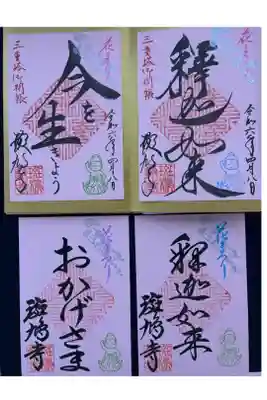 花まつり
釋迦如来
三重塔御開帳
令和六年四月八日
斑鳩寺
花まつり
今を
生きよう
三重塔御開帳
令和六年四月八日
斑鳩寺
花まつり
釈迦如来
斑鳩寺
おかげさま
斑鳩寺